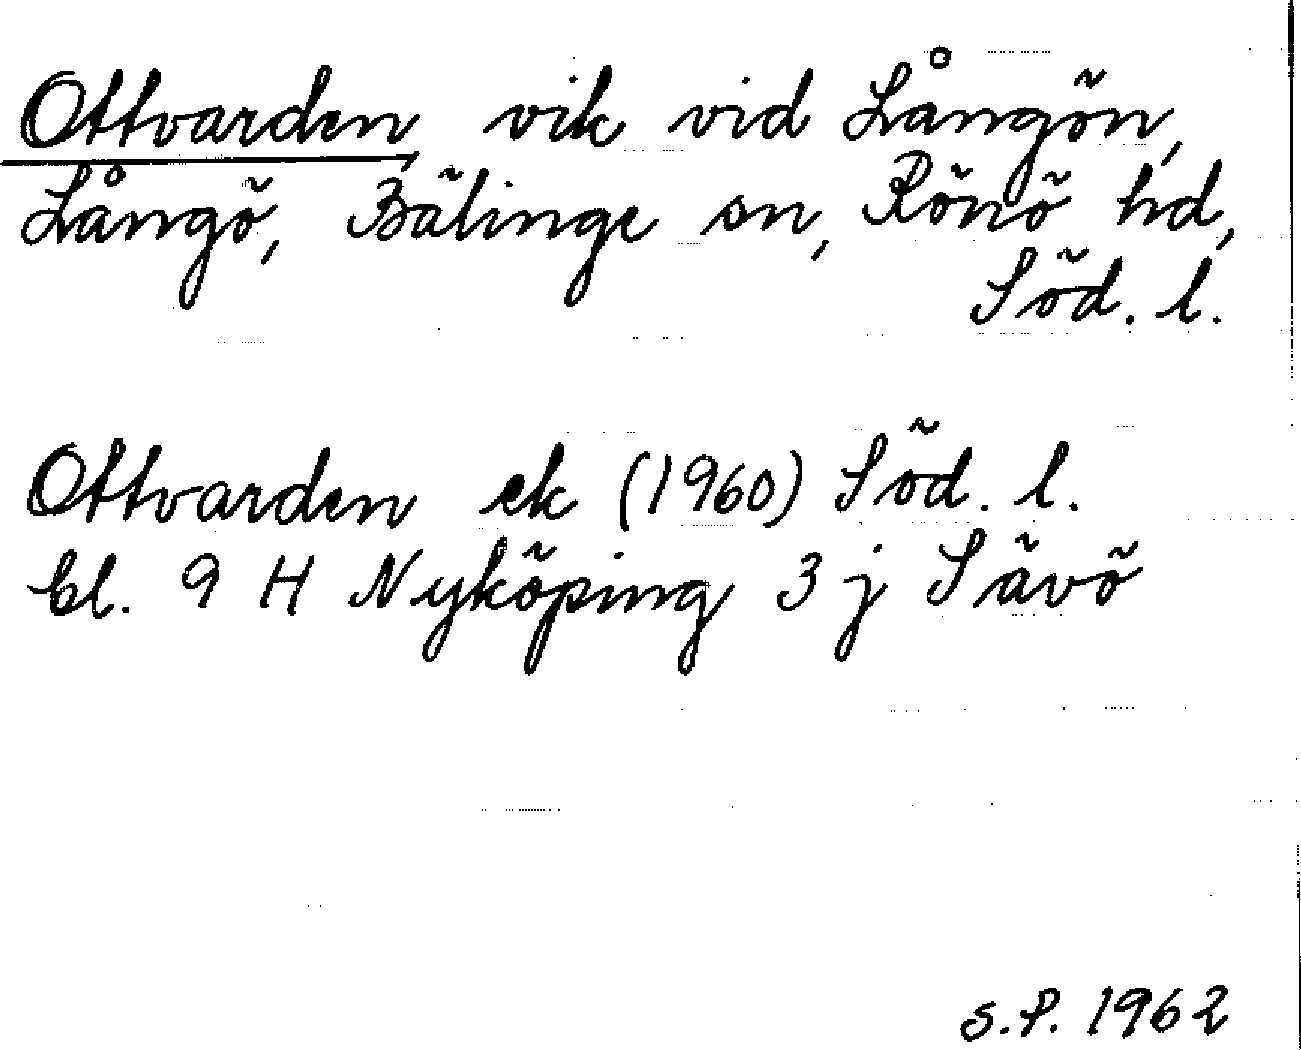 Ottvarden, vik vid Långön,
Långö, Bälinge sn, Rönö hd,
Söd. l.
Ottvarden ek (1960) Söd. l.
bl. 9 H Nyköping 3 j Sävö
S.P. 1962